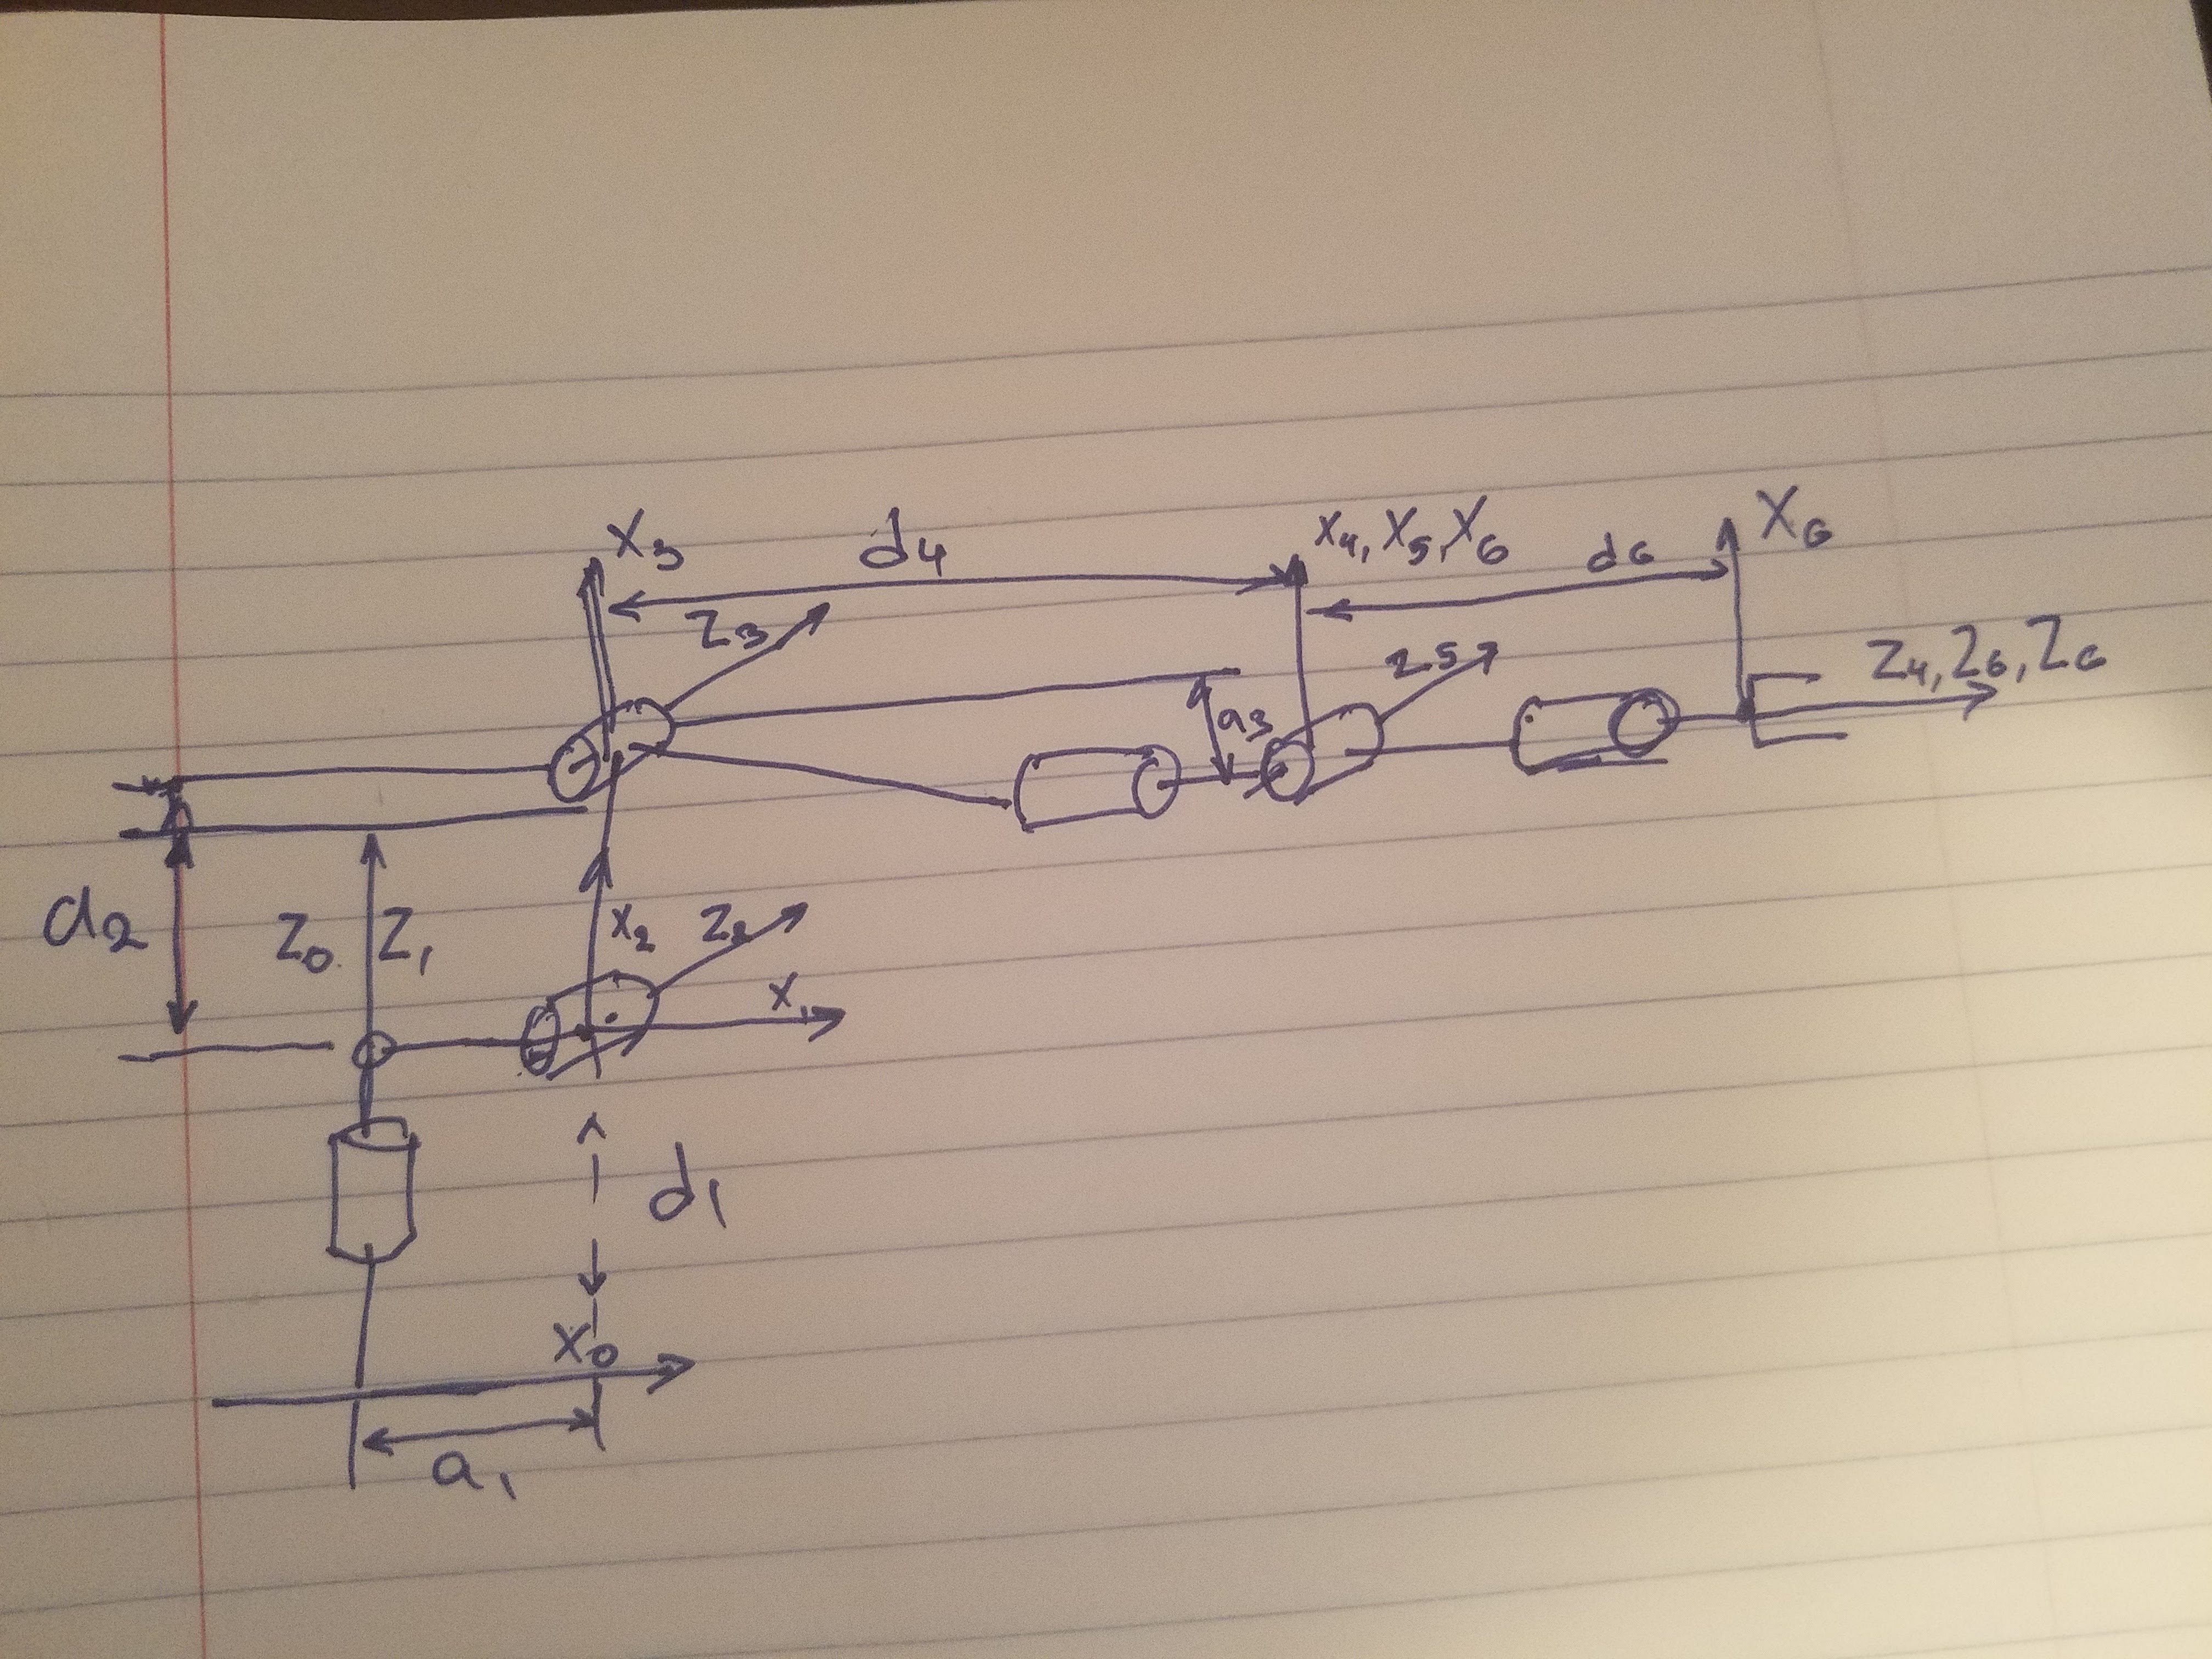 X₃
d₄
X₄, X₅, X₆
d₆
X₆
Z₃
Z₅
Z₄, Z₆, Z₆
a₃
a₂
Z₀ Z₁
X₂ Z₂
X₁
d₁
X₀
a₁